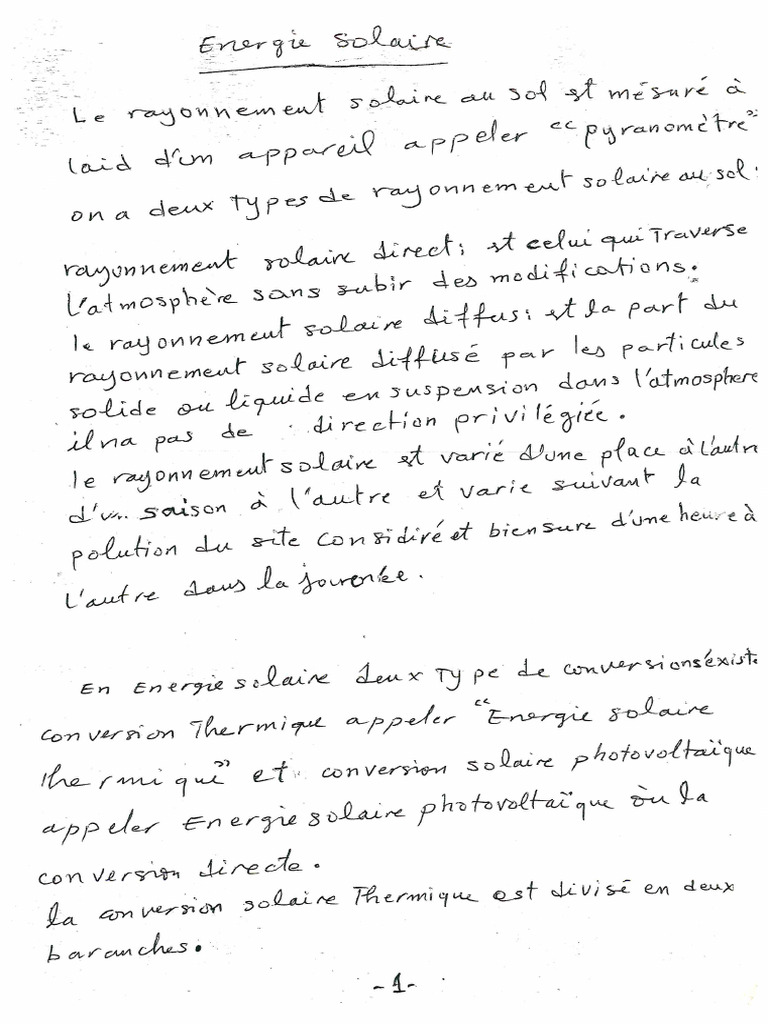 Energie solaire
Le rayonnement solaire au sol est mésuré à
laid d'un appareil appeler "pyranomètre"
on a deux types de rayonnement solaire au sol:
rayonnement solaire direct; est celui qui traverse
l'atmosphère sans subir des modifications.
le rayonnement solaire diffus: est la part du
rayonnement solaire diffusé par les particules
solide ou liquide en suspension dans l'atmosphere
il na pas de direction privilégiée.
le rayonnement solaire est varié d'une place à l'autre
saison à l'autre et varie suivant la
polution du site considiré et bien sure d'une heure à
l'autre dans la journée.
En Energie solaire deux type de conversions éxiste
conversion Thermique appeler "Energie solaire
thermique" et conversion solaire photovoltaïque
appeler Energie solaire photovoltaïque òu la
conversion directe.
la conversion solaire Thermique est divisé en deux
baranches.
-1-